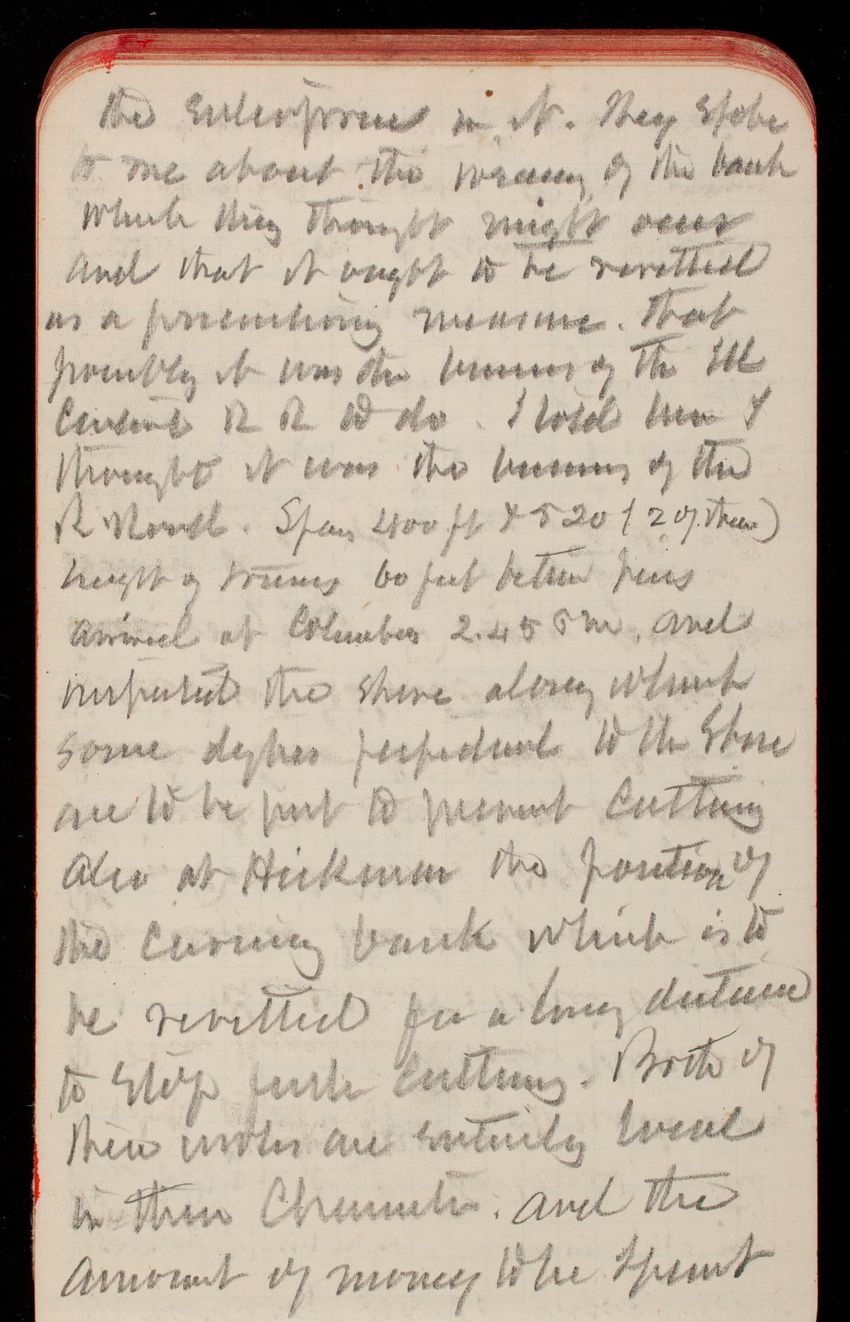 the enterprise in it. They spoke
to me about the wearing of the bank
which they thought might occur
and that it ought to be revetted
as a precautionary measure. That
possibly it was the business of the Ill
Central R R to do. I told him I
thought it was the business of the
R. Road. Span 400 ft & 520 (2 of them)
height of trusses 60 feet between piers
arrived at Columbus 2.45 P m. and
inspected the shore along which
some dykes perpendicul to the shore
are to be put to prevent cutting
Also at Hickman the position of
the caving bank which is to
be revetted for a long distance
to stop further cutting. Both of
these works are entirely local
in their character. and the
amount of money to be spent